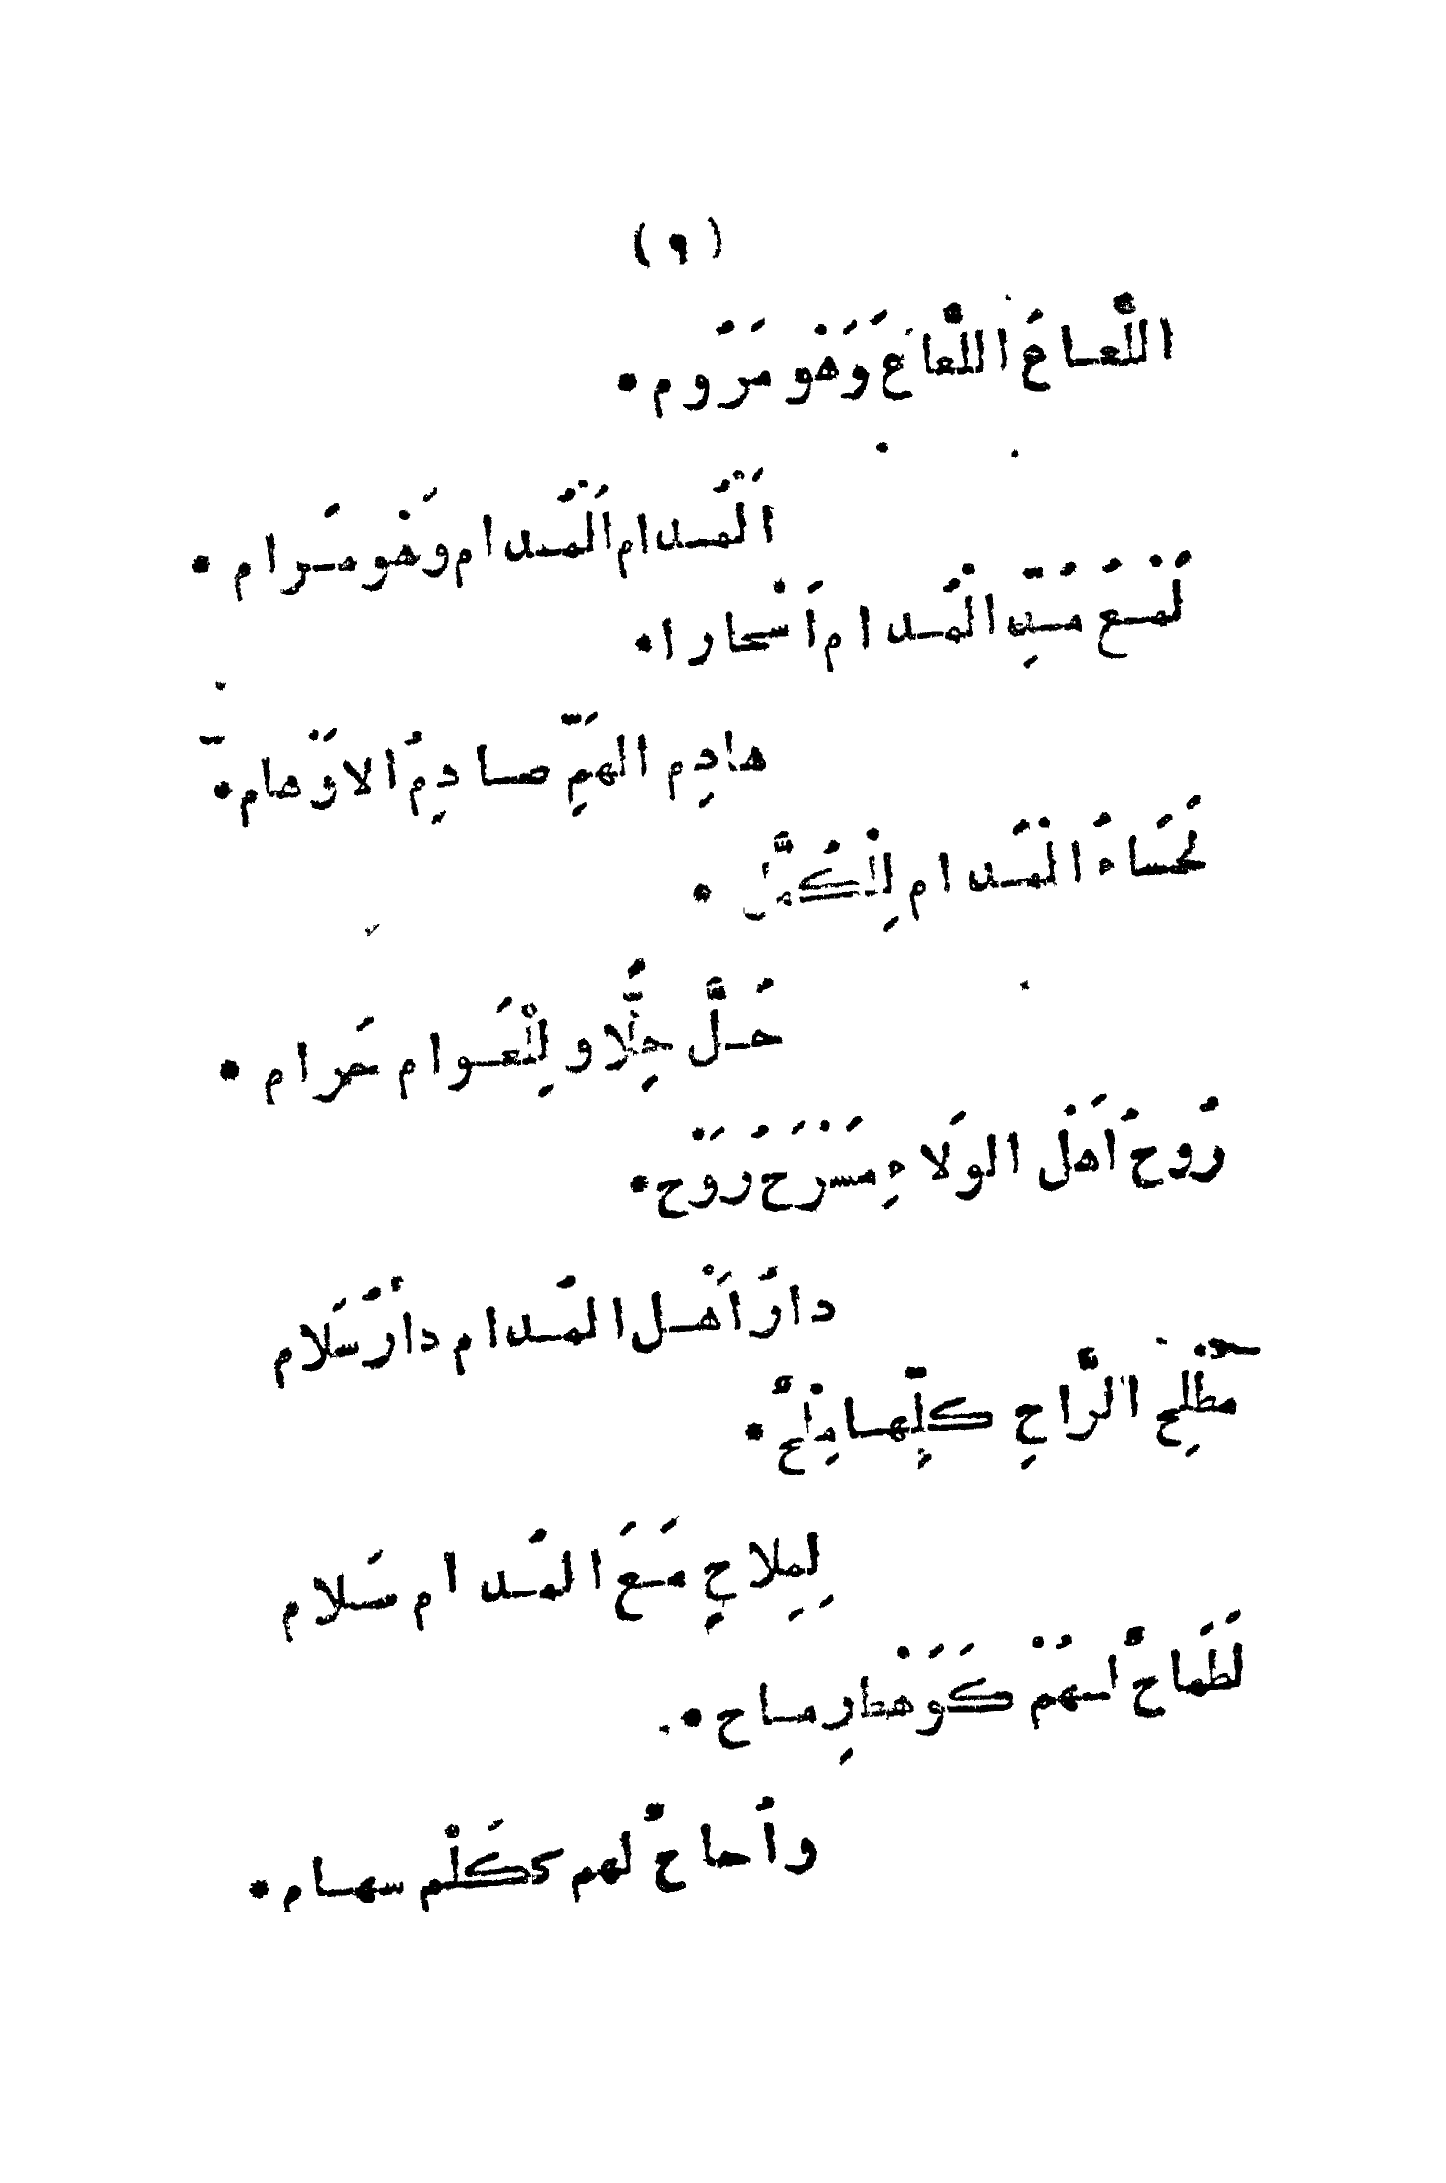 (٩)
اللَّعَاعَ اللَّعَاعَ وَهْوَ مَرُوم •
اَلْمُدام اَلْمُدام وَهْو مَرام •
لَمْعُ مُدِّ الْمُدام اَسْحارا •
هادِم الهَمِّ صادِمُ الاَوْهام •
لَحَساءُ الْمُدام لِلْكُمَّل •
حَلَّ حِلًّا وِللْعَوام حَرام •
رُوحُ اَهْل الوَلاءِ مَسْرَحُ رَوْح •
دارُ اَهْل المُدام دارُ سَلام
مطْلِح الرَّاحِ كلِّها مِلْحٌ •
لِمِلاحٍ مَعَ المُدام سَلام
لَطَماحٌ لهُمْ كَوَهْطِ رِماح •
وأُحاحٌ لهم ككَلْم سهام •